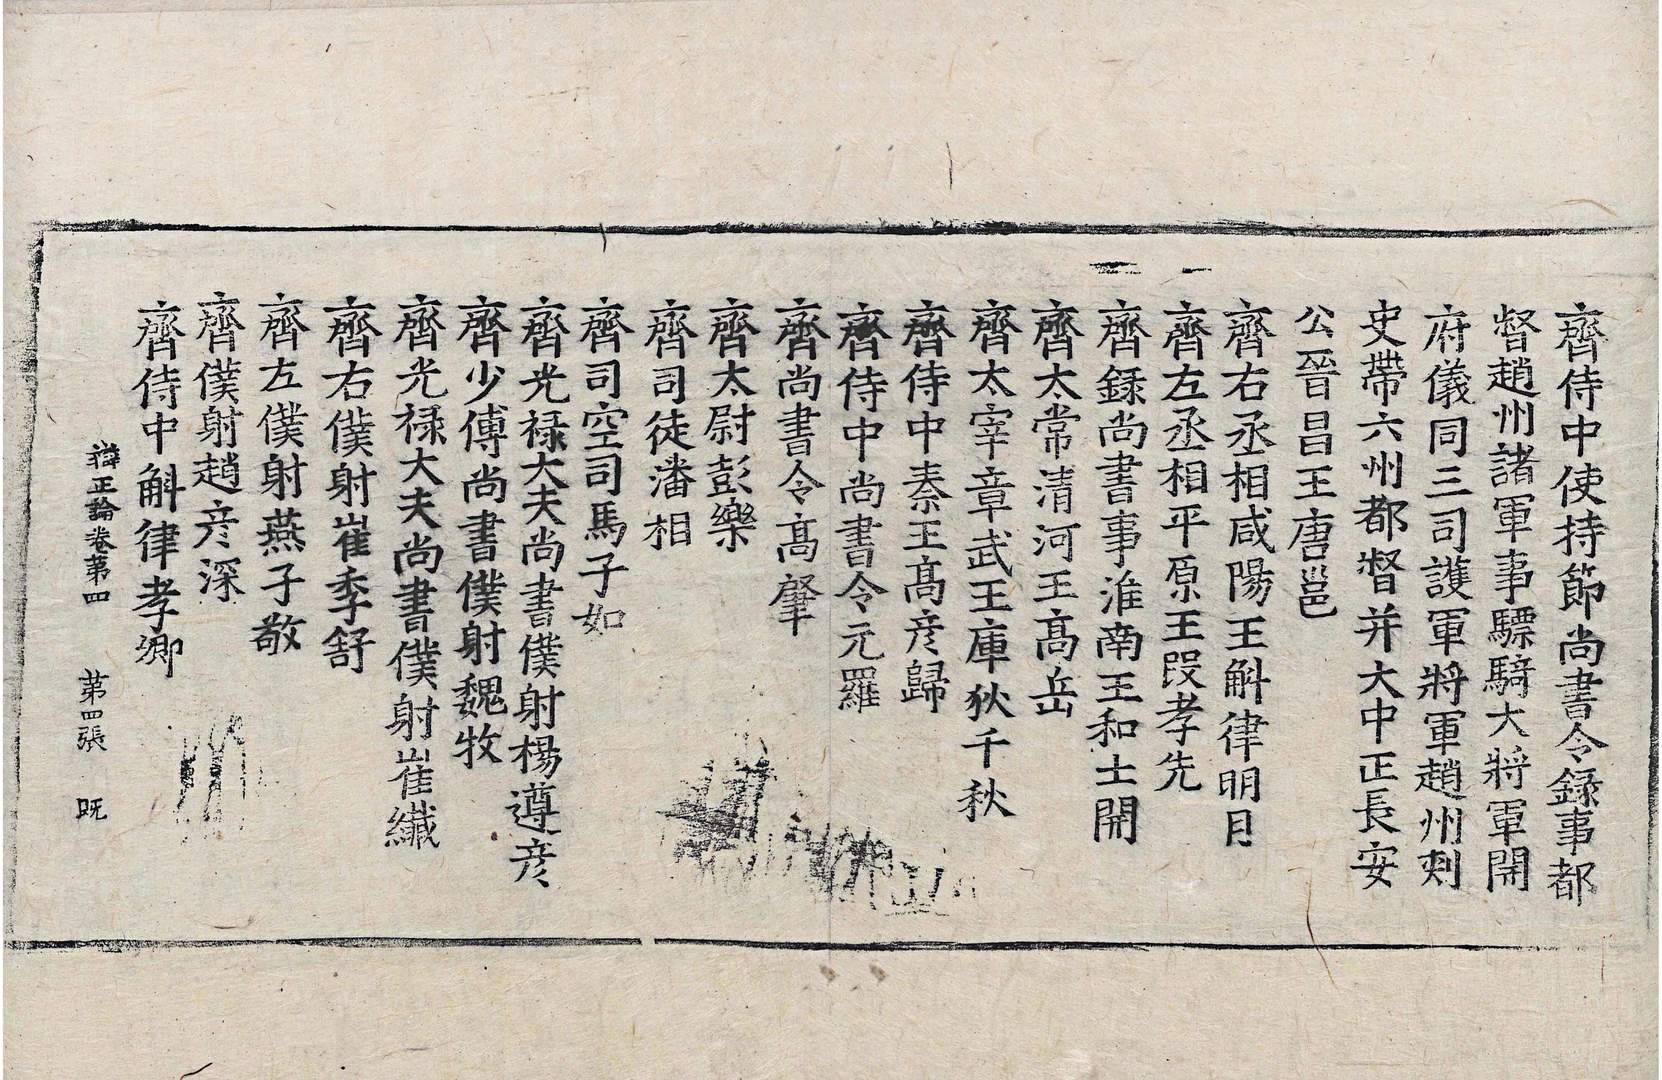 齊侍中使持節尚書令錄事都
督趙州諸軍事驃騎大將軍開
府儀同三司護軍將軍趙州刾
史帶六州都督并大中正長安
公晉昌王唐邕
齊右丞相咸陽王斛律明月
齊左丞相平原王段孝先
齊錄尚書事淮南王和士開
齊太常清河王高岳
齊太宰章武王庫狄千秋
齊侍中秦王高彦歸
齊侍中尚書令元羅
齊尚書令高肇
齊太尉彭樂
齊司徒潘相
齊司空司馬子如
齊光禄大夫尚書僕射楊遵彦
齊少傅尚書僕射魏牧
齊光禄大夫尚書僕射崔纖
齊右僕射崔季舒
齊左僕射燕子敬
齊僕射趙彦深
齊侍中斛律孝卿
辯正論卷第四 第四張 既